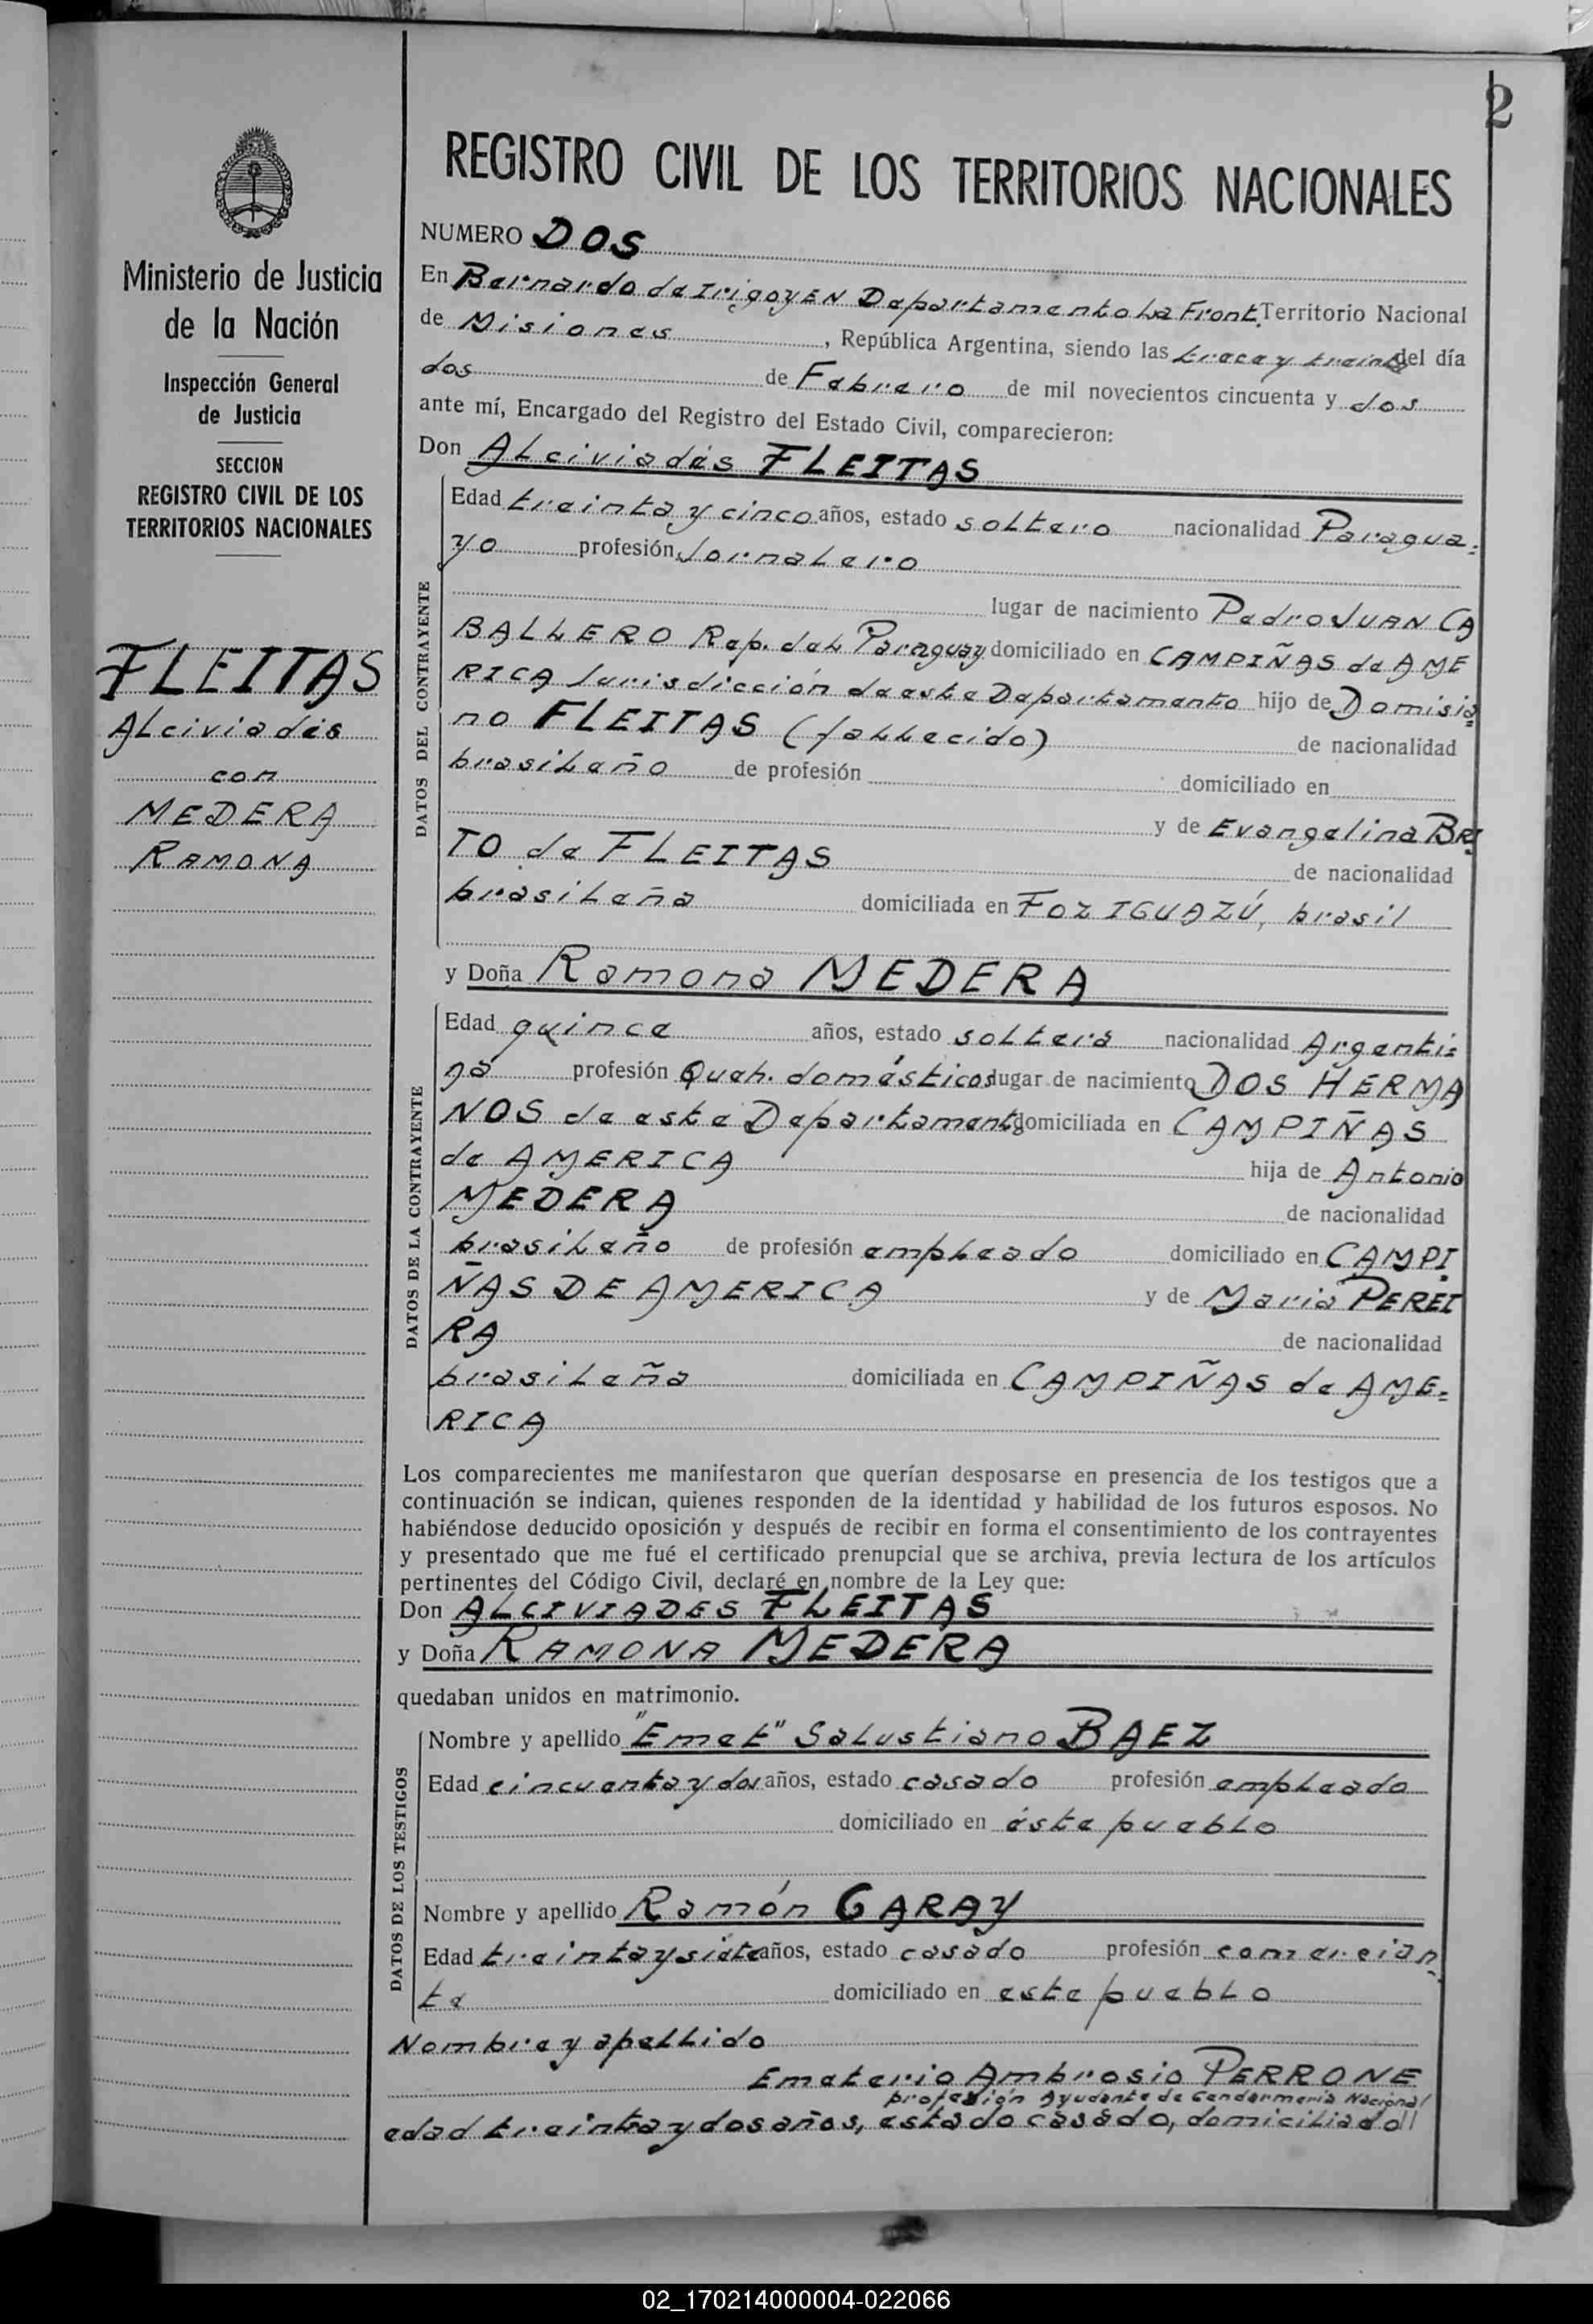 2
REGISTRO CIVIL DE LOS TERRITORIOS NACIONALES
Ministerio de Justicia
de la Nación
Inspección General
de Justicia
SECCION
REGISTRO CIVIL DE LOS
TERRITORIOS NACIONALES
FLEITAS
ALciviades
con
MEDERA
RAMONA
NUMERO DOS
En Bernardo de IrigoyEN Departamento La Front. Territorio Nacional
de Misiones, República Argentina, siendo las trece y treinta del día
dos de Febrero de mil novecientos cincuenta y dos
ante mí, Encargado del Registro del Estado Civil, comparecieron:
Don ALciviadés FLEITAS
DATOS DEL CONTRAYENTE
Edad treinta y cinco años, estado soltero nacionalidad Paragua=
yo profesión Jornalero
lugar de nacimiento Pedro JUAN CA
BALLERO Rep. del Paraguay domiciliado en CAMPIÑAS de AME
RICA Jurisdicción de este Departamento hijo de Domisia=
no FLEITAS (fallecido) de nacionalidad
brasileño de profesión domiciliado en
y de Evangelina BRI
TO de FLEITAS de nacionalidad
brasileña domiciliada en FOZ IGUAZÚ, brasil
y Doña Ramona MEDERA
DATOS DE LA CONTRAYENTE
Edad quince años, estado soltera nacionalidad Argenti=
na profesión Queh. domésticos lugar de nacimiento DOS HERMA
NOS de este Departamento domiciliada en CAMPIÑAS
de AMERICA hija de Antonio
MEDERA de nacionalidad
brasileño de profesión empleado domiciliado en CAMPI
ÑAS DE AMERICA y de Maria PEREI
RA de nacionalidad
brasileña domiciliada en CAMPIÑAS de AME=
RICA
Los comparecientes me manifestaron que querían desposarse en presencia de los testigos que a
continuación se indican, quienes responden de la identidad y habilidad de los futuros esposos. No
habiéndose deducido oposición y después de recibir en forma el consentimiento de los contrayentes
y presentado que me fué el certificado prenupcial que se archiva, previa lectura de los artículos
pertinentes del Código Civil, declaré en nombre de la Ley que:
Don ALCIVIADES FLEITAS
y Doña RAMONA MEDERA
quedaban unidos en matrimonio.
DATOS DE LOS TESTIGOS
Nombre y apellido "Emet" Salustiano BAEZ
Edad cincuenta y dos años, estado casado profesión empleado
domiciliado en éste pueblo
Nombre y apellido Ramón GARAY
Edad treinta y siete años, estado casado profesión comercian
te domiciliado en este pueblo
Nombre y apellido
Emeterio Ambrosio PERRONE
profesión Ayudante de Gendarmería Nacional
edad treinta y dos años, estado casado, domiciliado
02_170214000004-022066